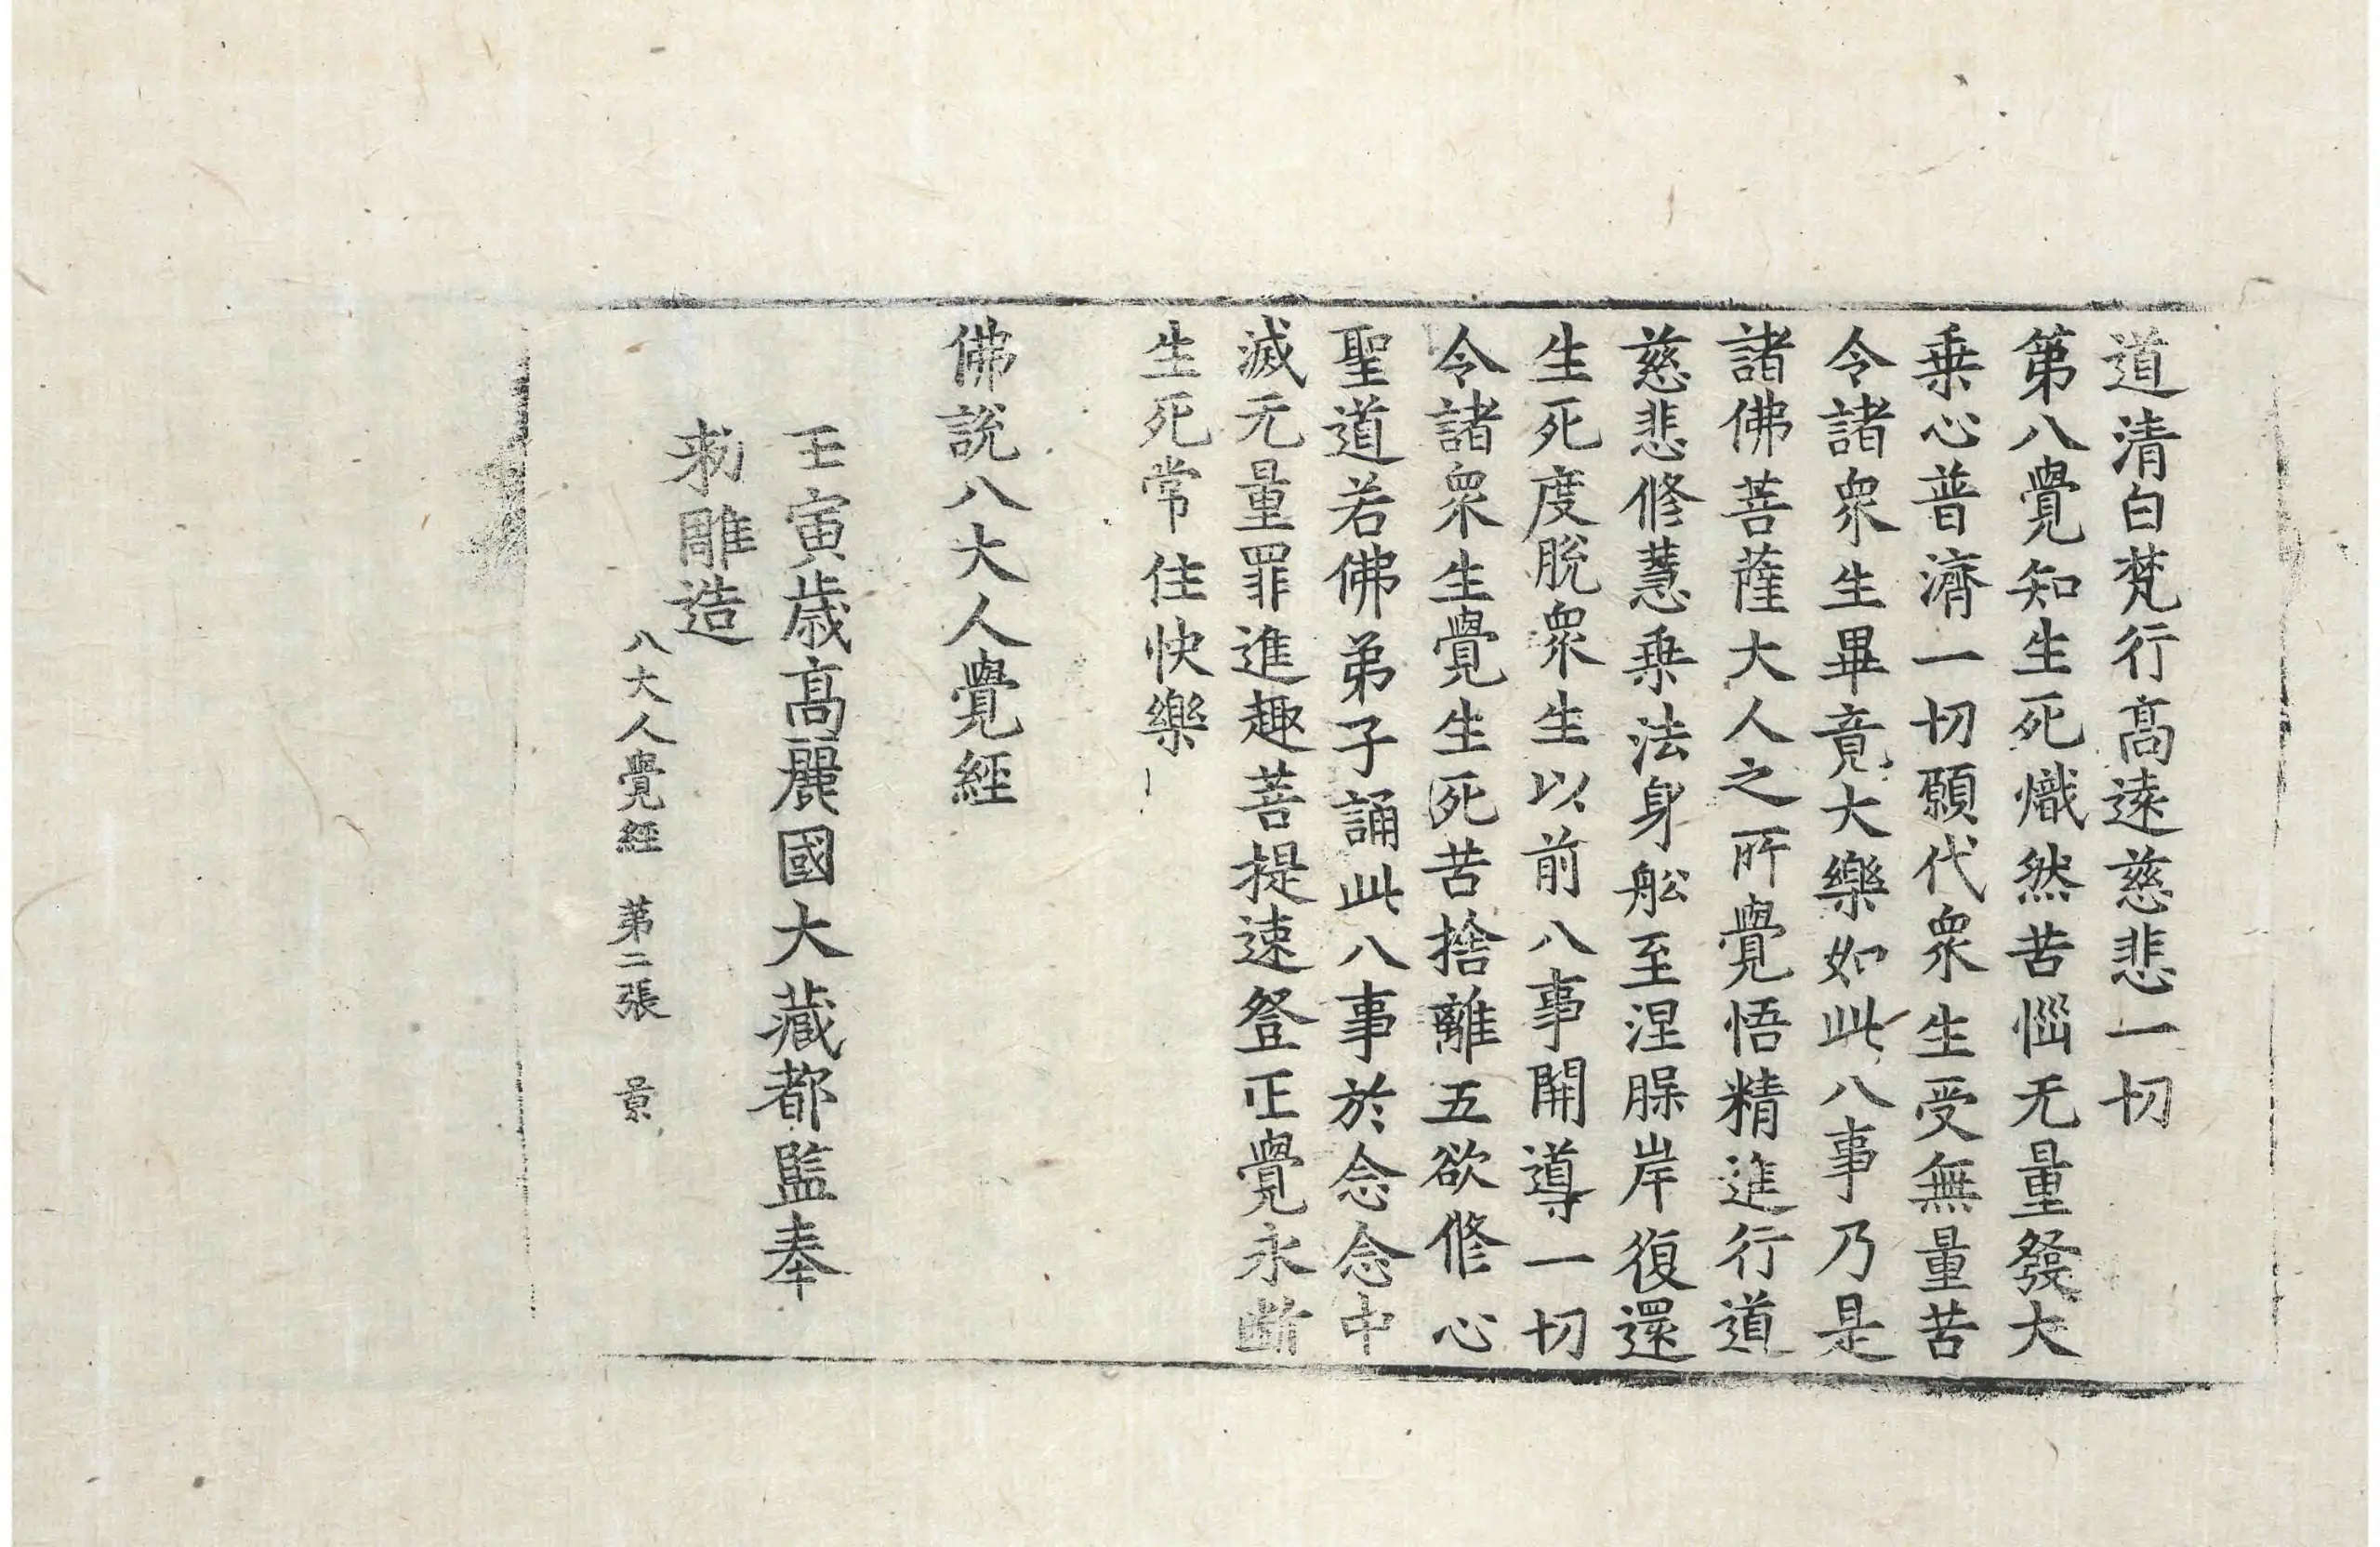 道清白梵行高遠慈悲一切
第八覺知生死熾然苦惱无量發大
乗心普濟一切願代衆生受無量苦
令諸衆生畢竟大樂如此八事乃是
諸佛菩薩大人之所覺悟精進行道
慈悲修慧乗法身舩至涅槃岸復還
生死度脫衆生以前八事開導一切
令諸衆生覺生死苦捨離五欲修心
聖道若佛弟子誦此八事於念念中
滅无量罪進趣菩提速登正覺永斷
生死常住快樂
佛說八大人覺經
壬寅歲高麗國大藏都監奉
勑雕造
八大人覺經 第二張 景